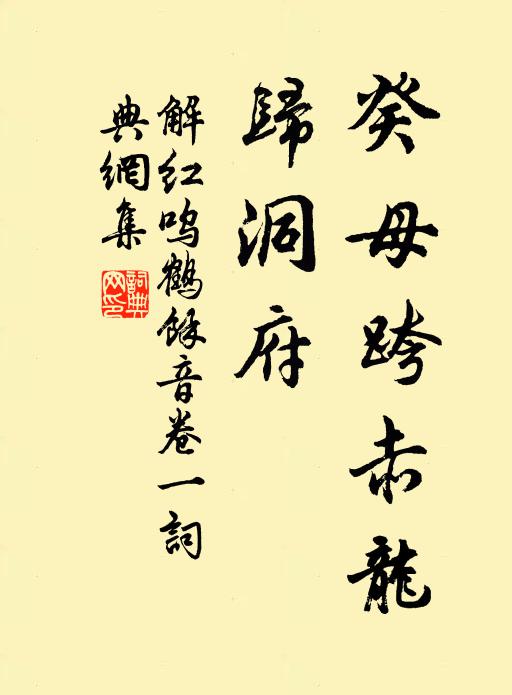 癸母跨赤龍
歸洞府
解紅鸣鶴餘音卷一詞
典網集
詞典網印